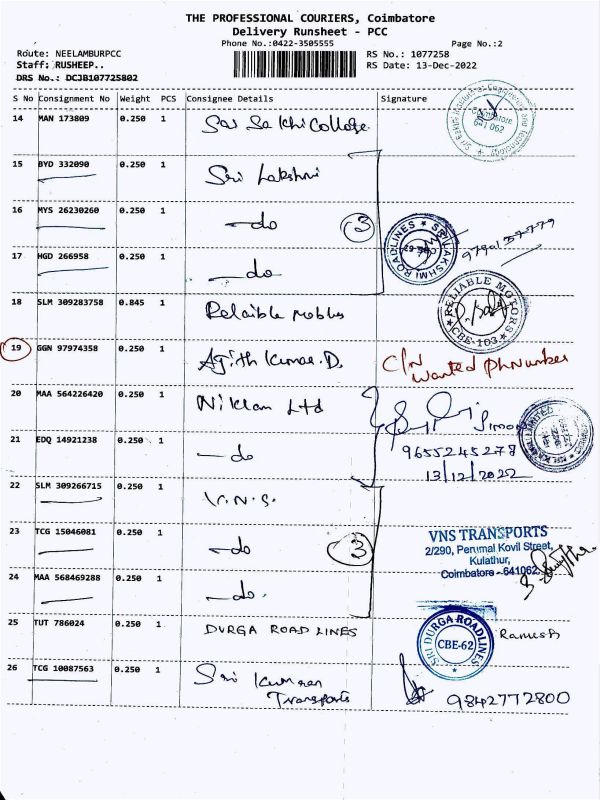 THE PROFESSIONAL COURIERS, Coimbatore
Delivery Runsheet - PCC
Phone No.:0422-3505555
Page No.:2
Route: NEELAMBURPCC
RS No.: 1077258
Staff: RUSHEEP..
RS Date: 13-Dec-2022
DRS No.: DCJB107725802
S No Consignment No Weight PCS Consignee Details Signature
14 MAN 173809 0.250 1 Sai Sakthi College
Coimbatore
641 062
15 BYD 332090 0.250 1 Sri Lakshmi
16 MYS 26230260 0.250 1 —do 3
SRI LAKSHMI ROADLINES
17 HGD 266958 0.250 1 —do
18 SLM 309283758 0.845 1 Relaible mobles
RELIABLE MOTORS
CBE-103
19 GGN 97974358 0.250 1 Agith Kumar.D. C/N
Wanted PhNumber
20 MAA 564226420 0.250 1 Niklan Ltd
21 EDQ 14921238 0.250 1 —do 9655245278
13/12/2022
22 SLM 309266715 0.250 1 V.N.S.
23 TCG 15046081 0.250 1 —do 3
VNS TRANSPORTS
2/290, Perumal Kovil Street,
Kulathur,
Coimbatore - 641062.
24 MAA 568469288 0.250 1 —do.
25 TUT 786024 0.250 1 DURGA ROAD LINES
SRI DURGA ROADLINES
CBE-62
Ramesh
26 TCG 10087563 0.250 1 Sri Kumaran
Transports
9842772800